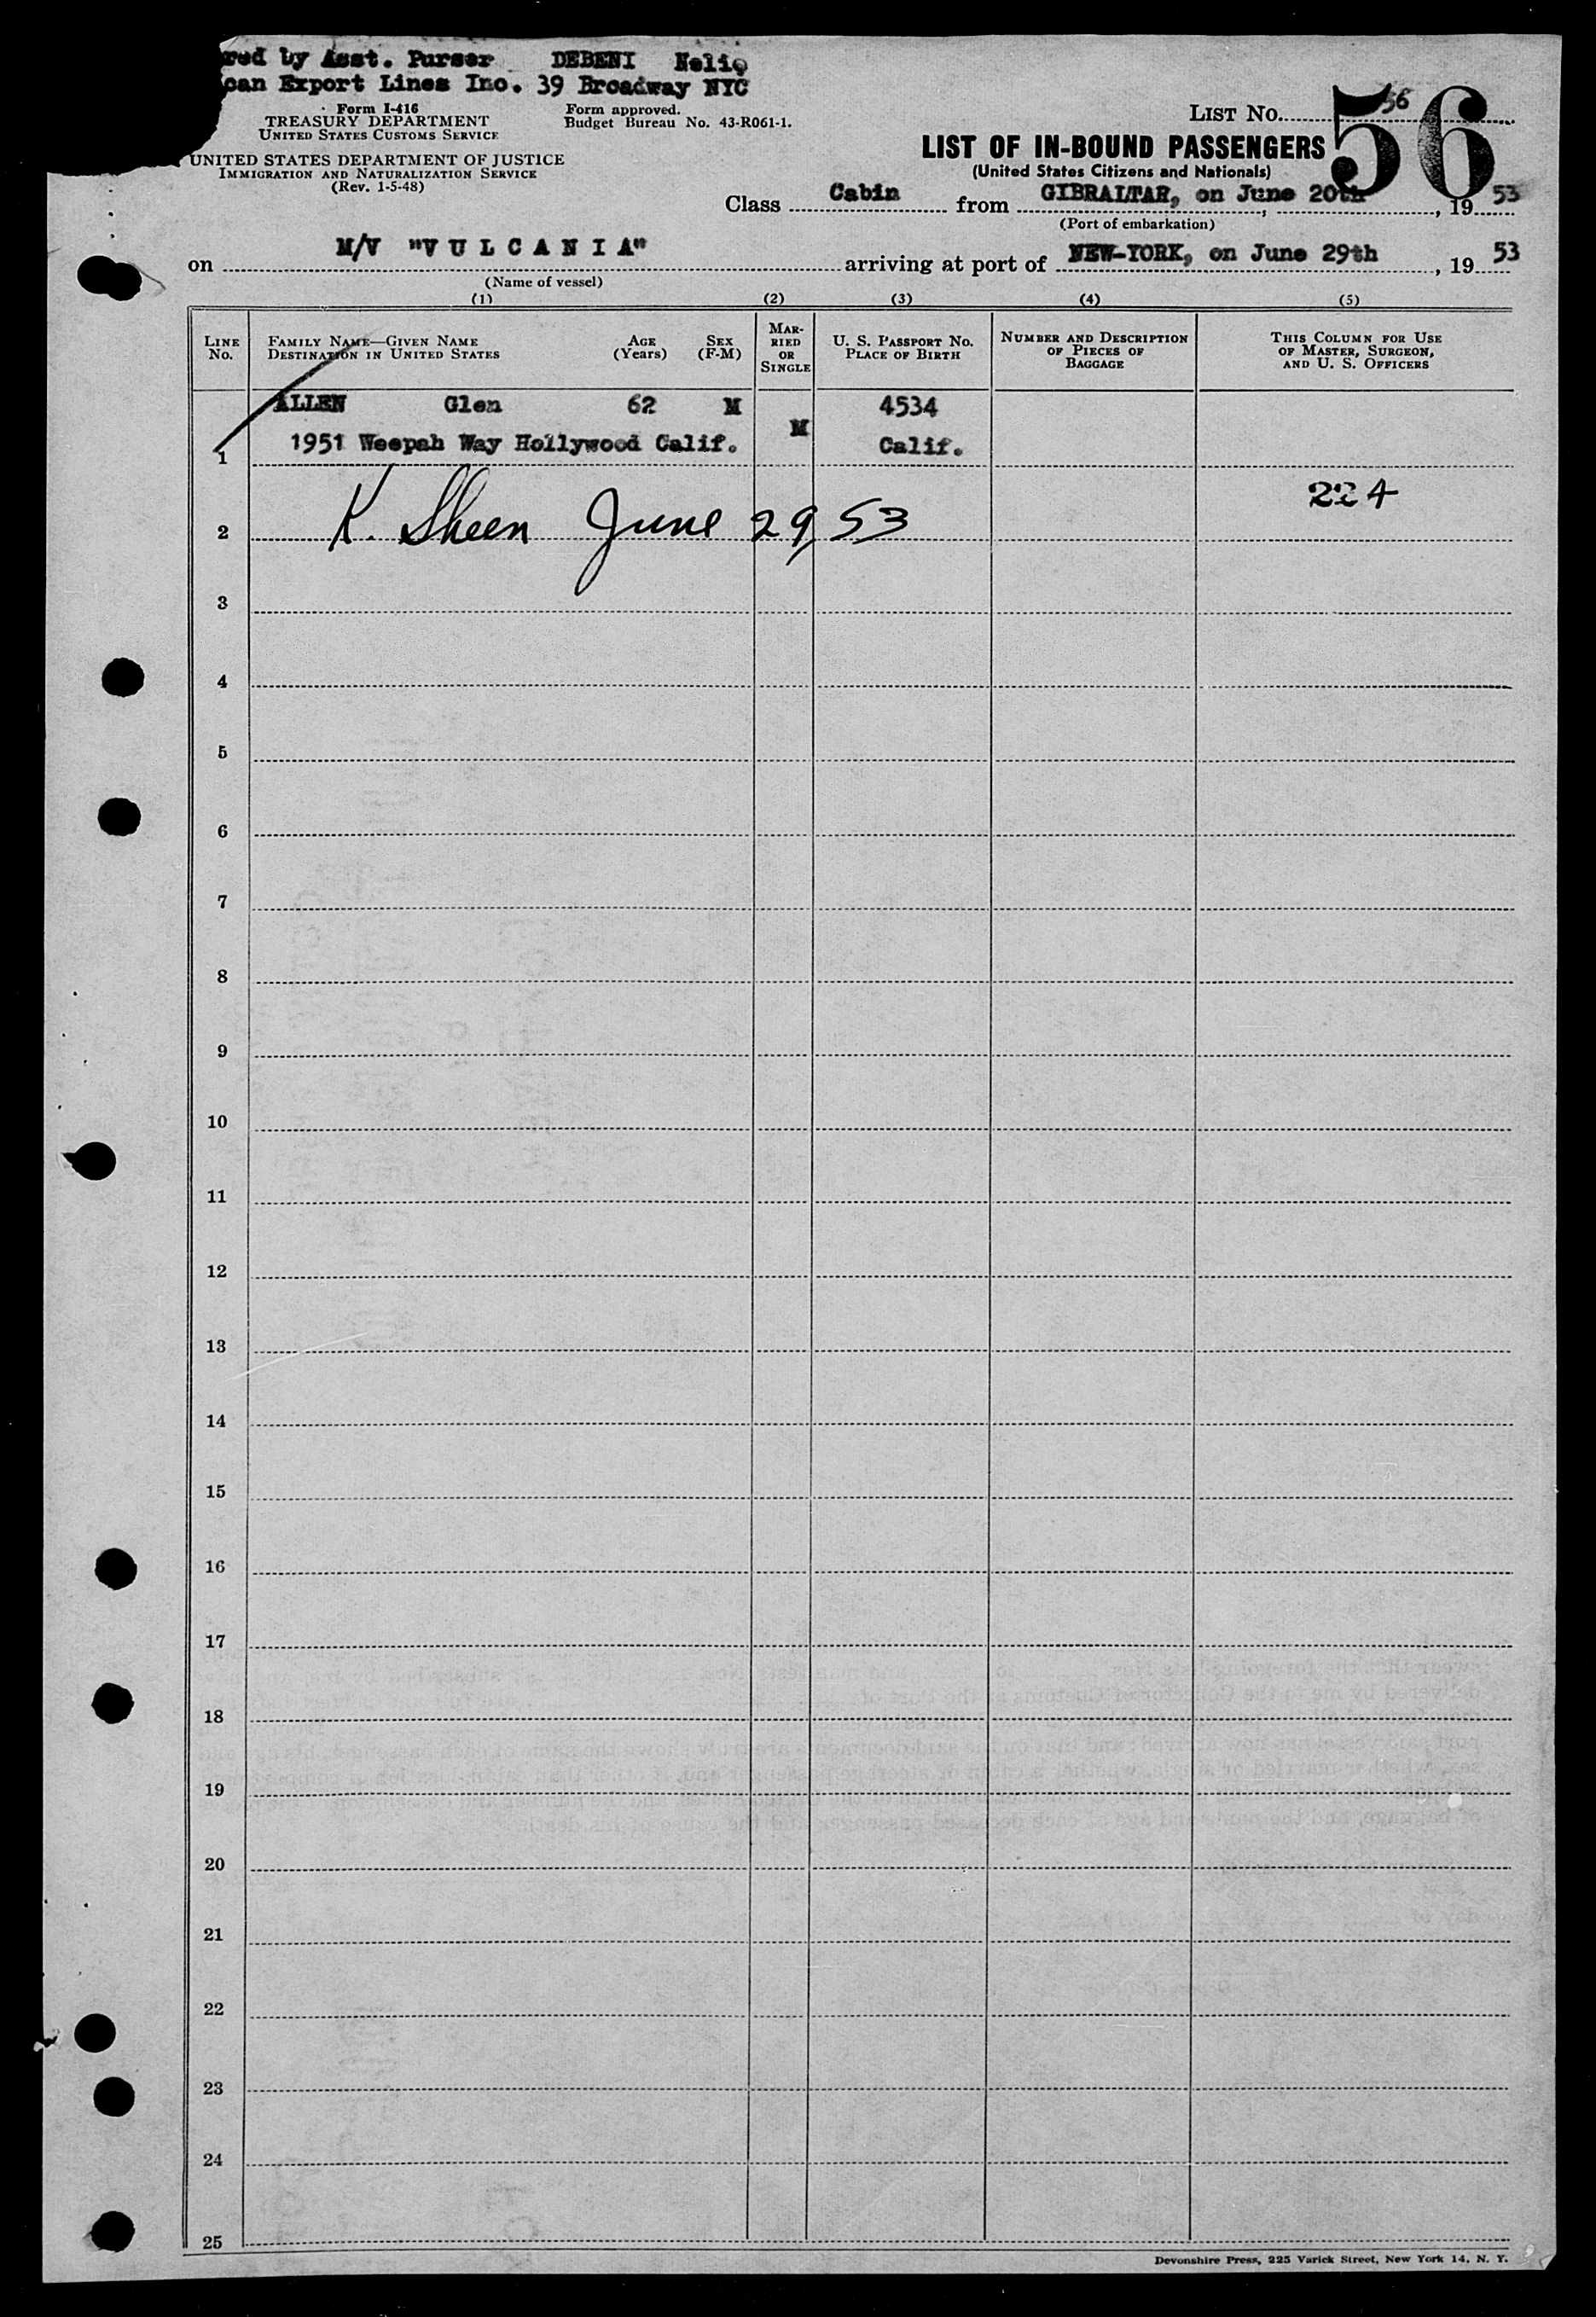 red by Asst. Purser DEBENI Nelio
can Export Lines Inc. 39 Broadway NYC
Form I-416
TREASURY DEPARTMENT
UNITED STATES CUSTOMS SERVICE
Form approved.
Budget Bureau No. 43-R061-1.
UNITED STATES DEPARTMENT OF JUSTICE
IMMIGRATION AND NATURALIZATION SERVICE
(Rev. 1-5-48)
LIST No. 56
56
LIST OF IN-BOUND PASSENGERS
(United States Citizens and Nationals)
Class Cabin from GIBRALTAR, on June 20th, 19 53
(Port of embarkation)
on M/V "VULCANIA" arriving at port of NEW-YORK, on June 29th, 19 53
(Name of vessel)
(1) (2) (3) (4) (5)
LINE No.
FAMILY NAME—GIVEN NAME
DESTINATION IN UNITED STATES
AGE (Years)
SEX (F-M)
MARRIED OR SINGLE
U. S. PASSPORT No.
PLACE OF BIRTH
NUMBER AND DESCRIPTION OF PIECES OF BAGGAGE
THIS COLUMN FOR USE OF MASTER, SURGEON, AND U. S. OFFICERS
ALLEN Glen 62 M M 4534
1 1951 Weepah Way Hollywood Calif. Calif.
224
2 K. Sheen June 29, 53
3
4
5
6
7
8
9
10
11
12
13
14
15
16
17
18
19
20
21
22
23
24
25
Devonshire Press, 225 Varick Street, New York 14, N. Y.